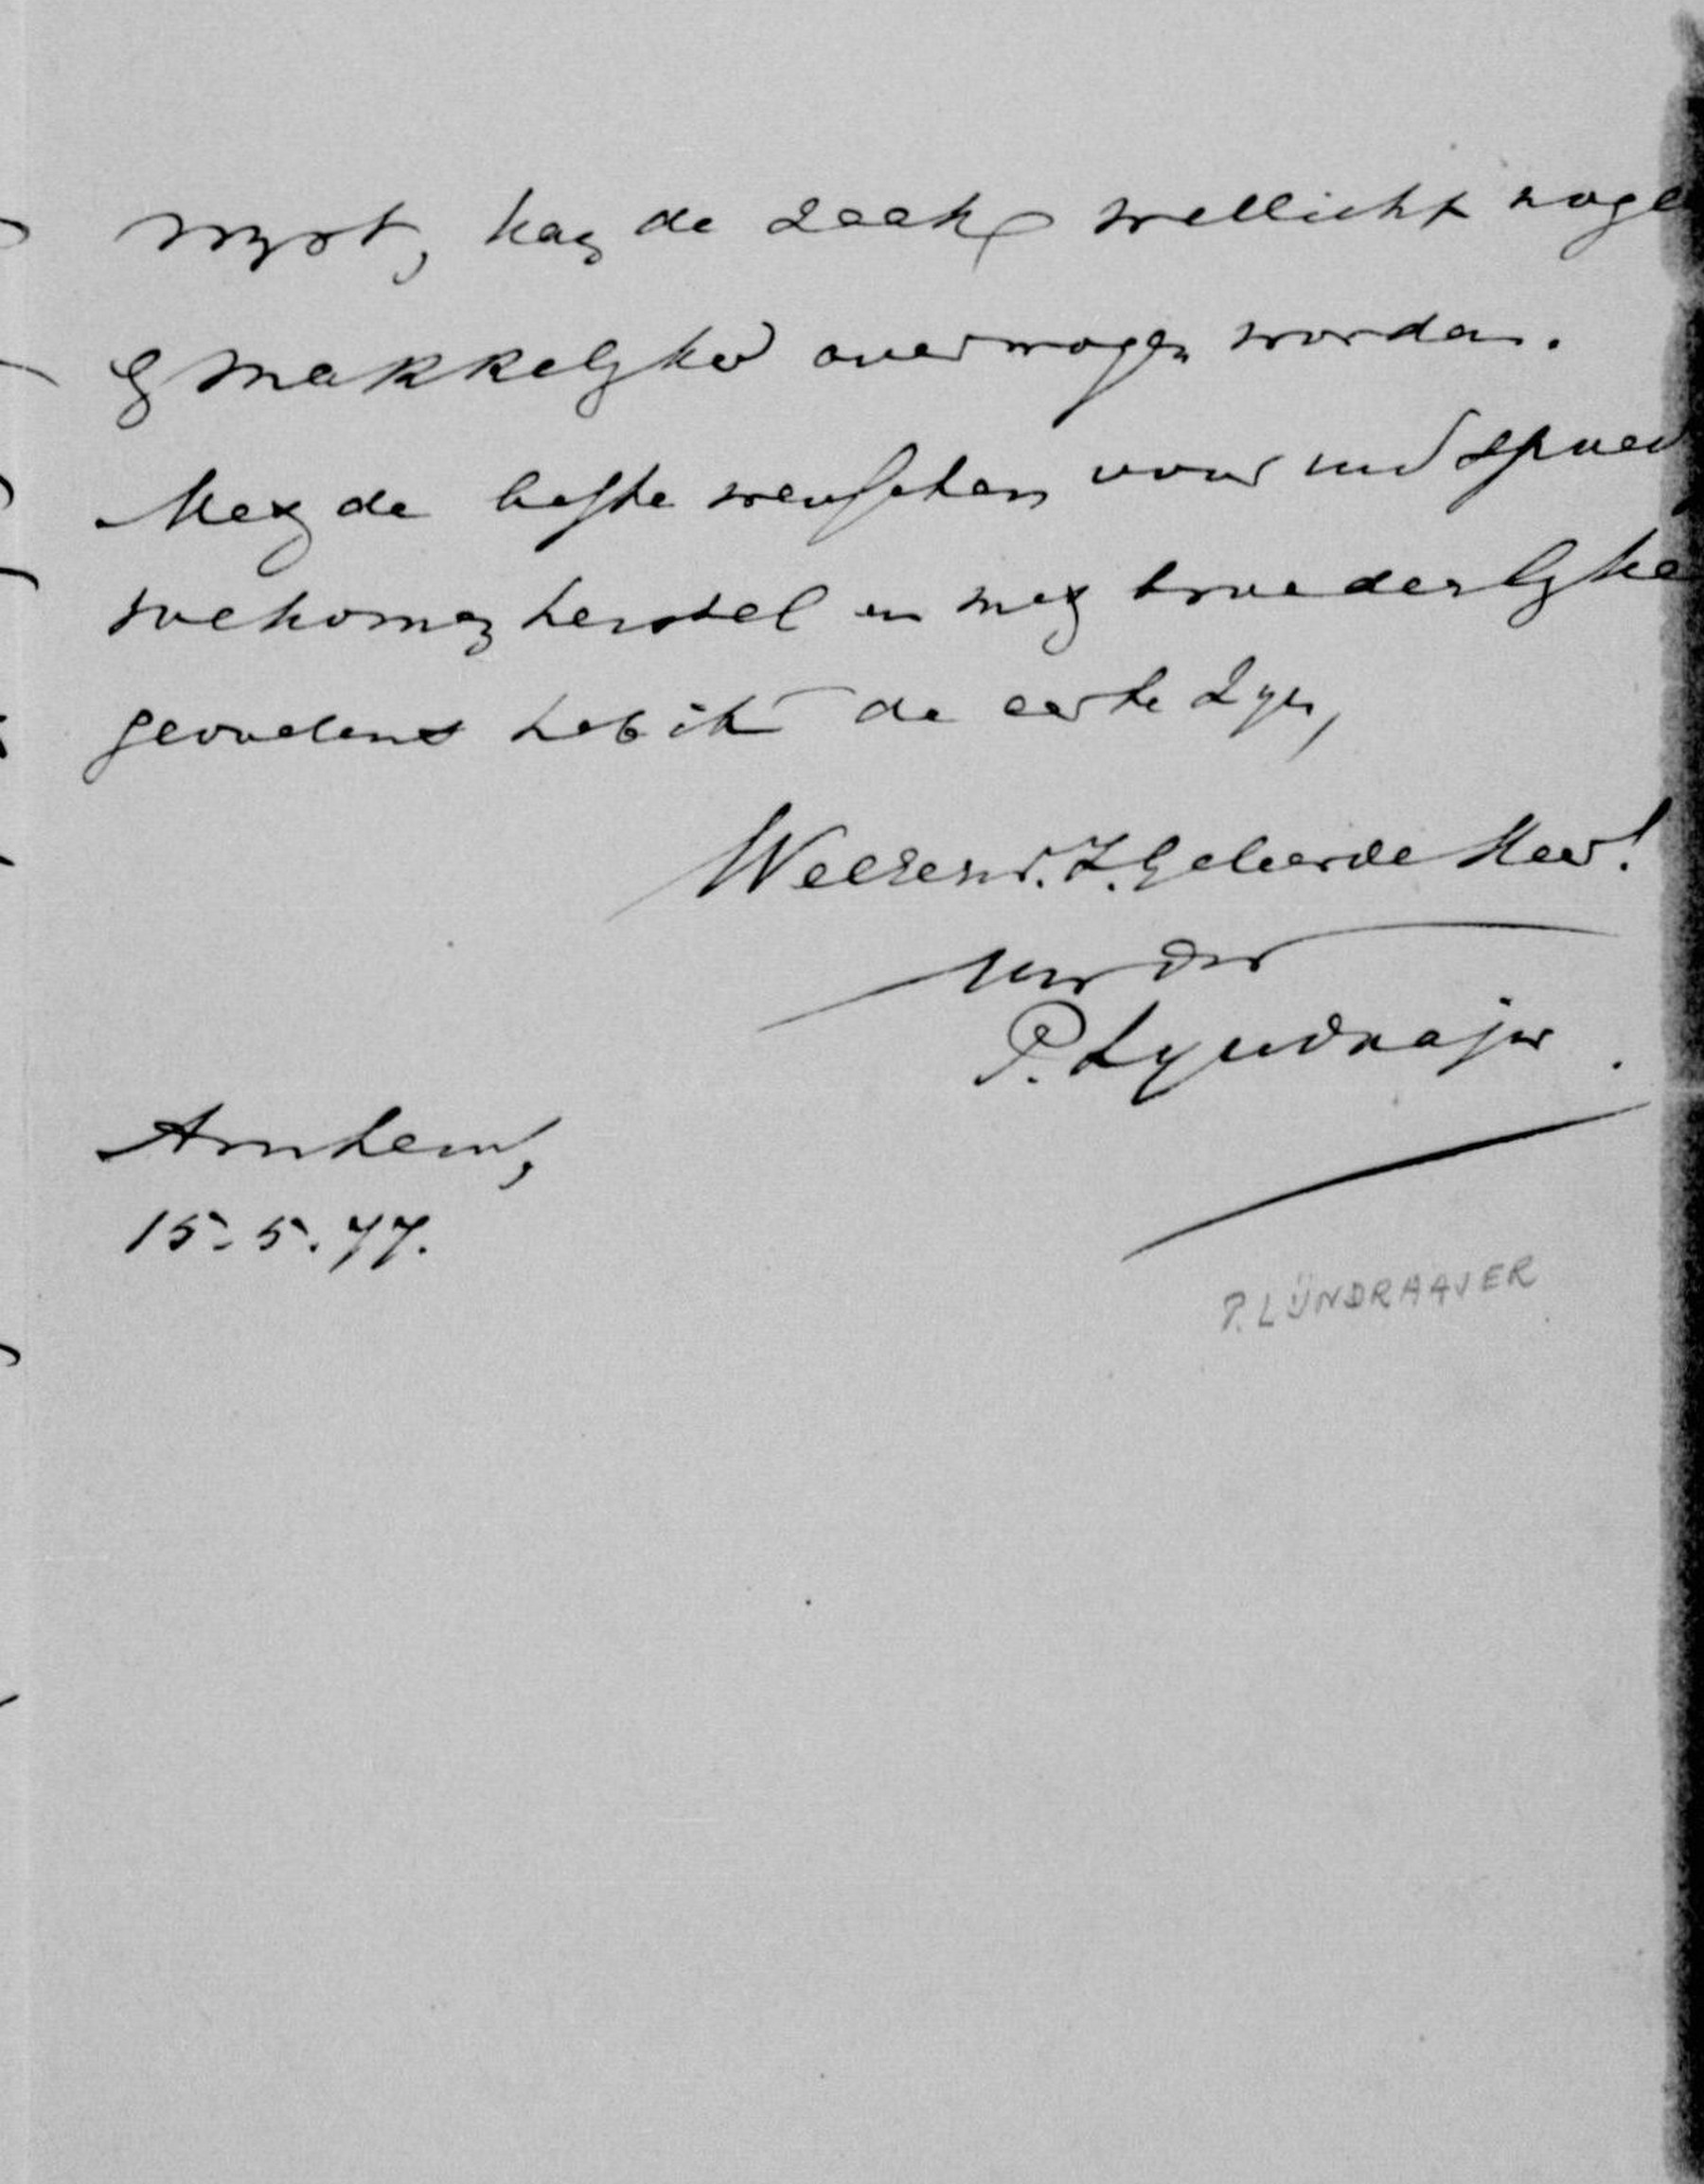 wijst, kan de zaak wellicht nog
gemakkelijker overwogen worden.
Met de beste wenschen voor uw spoed
toekomez herstel en met broederlijke
gevoelens heb ik de eer te zijn,
WelEerw. Z. Geleerde Heer!
Uw dw
P. Lijndrajer.
Arnhem,
15-5.77.
P. LIJNDRAAJER